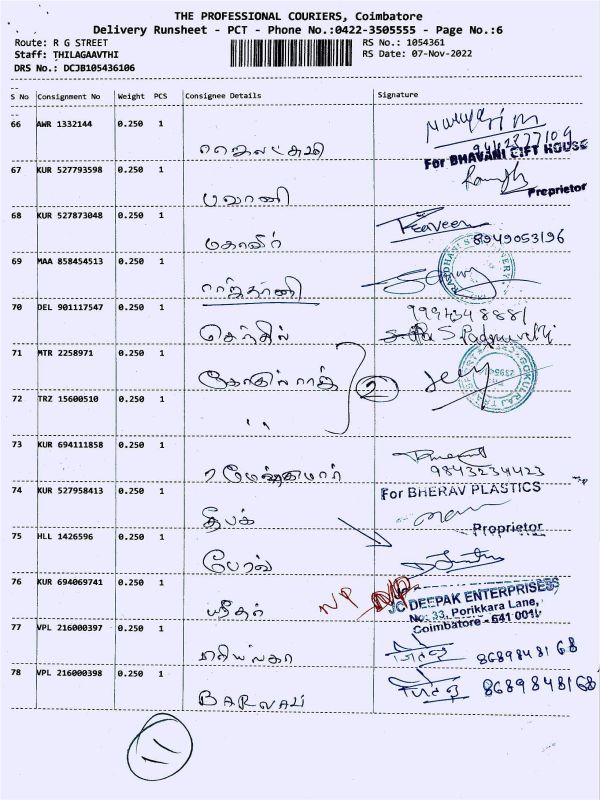 THE PROFESSIONAL COURIERS, Coimbatore
Delivery Runsheet - PCT - Phone No.:0422-3505555 - Page No.:6
Route: R G STREET
RS No.: 1054361
Staff: THILAGAAVTHI
RS Date: 07-Nov-2022
DRS No.: DCJB105436106
S No Consignment No Weight PCS Consignee Details Signature
66 AWR 1332144 0.250 1
ராஜலட்சுமி
For BHAVANI GIFT HOUSE
67 KUR 527793598 0.250 1
Preprietor
பவானி
68 KUR 527873048 0.250 1
மகாவீர் 8949053196
69 MAA 858454513 0.250 1
ராஜ்தானி
70 DEL 901117547 0.250 1
செந்தில்
71 MTR 2258971 0.250 1
கோகுல்ராஜ் 2
72 TRZ 15600510 0.250 1
"
73 KUR 694111858 0.250 1
ரமேஷ்குமார் 9843234423
74 KUR 527958413 0.250 1
For BHERAV PLASTICS
தீபக் Proprietor
75 HLL 1426596 0.250 1
76 KUR 694069741 0.250 1
NP NP
JC DEEPAK ENTERPRISESS
No: 33, Porikkara Lane,
Coimbatore - 641 001
ஸ்ரீதர்
77 VPL 216000397 0.250 1
8689848168
78 VPL 216000398 0.250 1
8689848168
BARVAVI
11